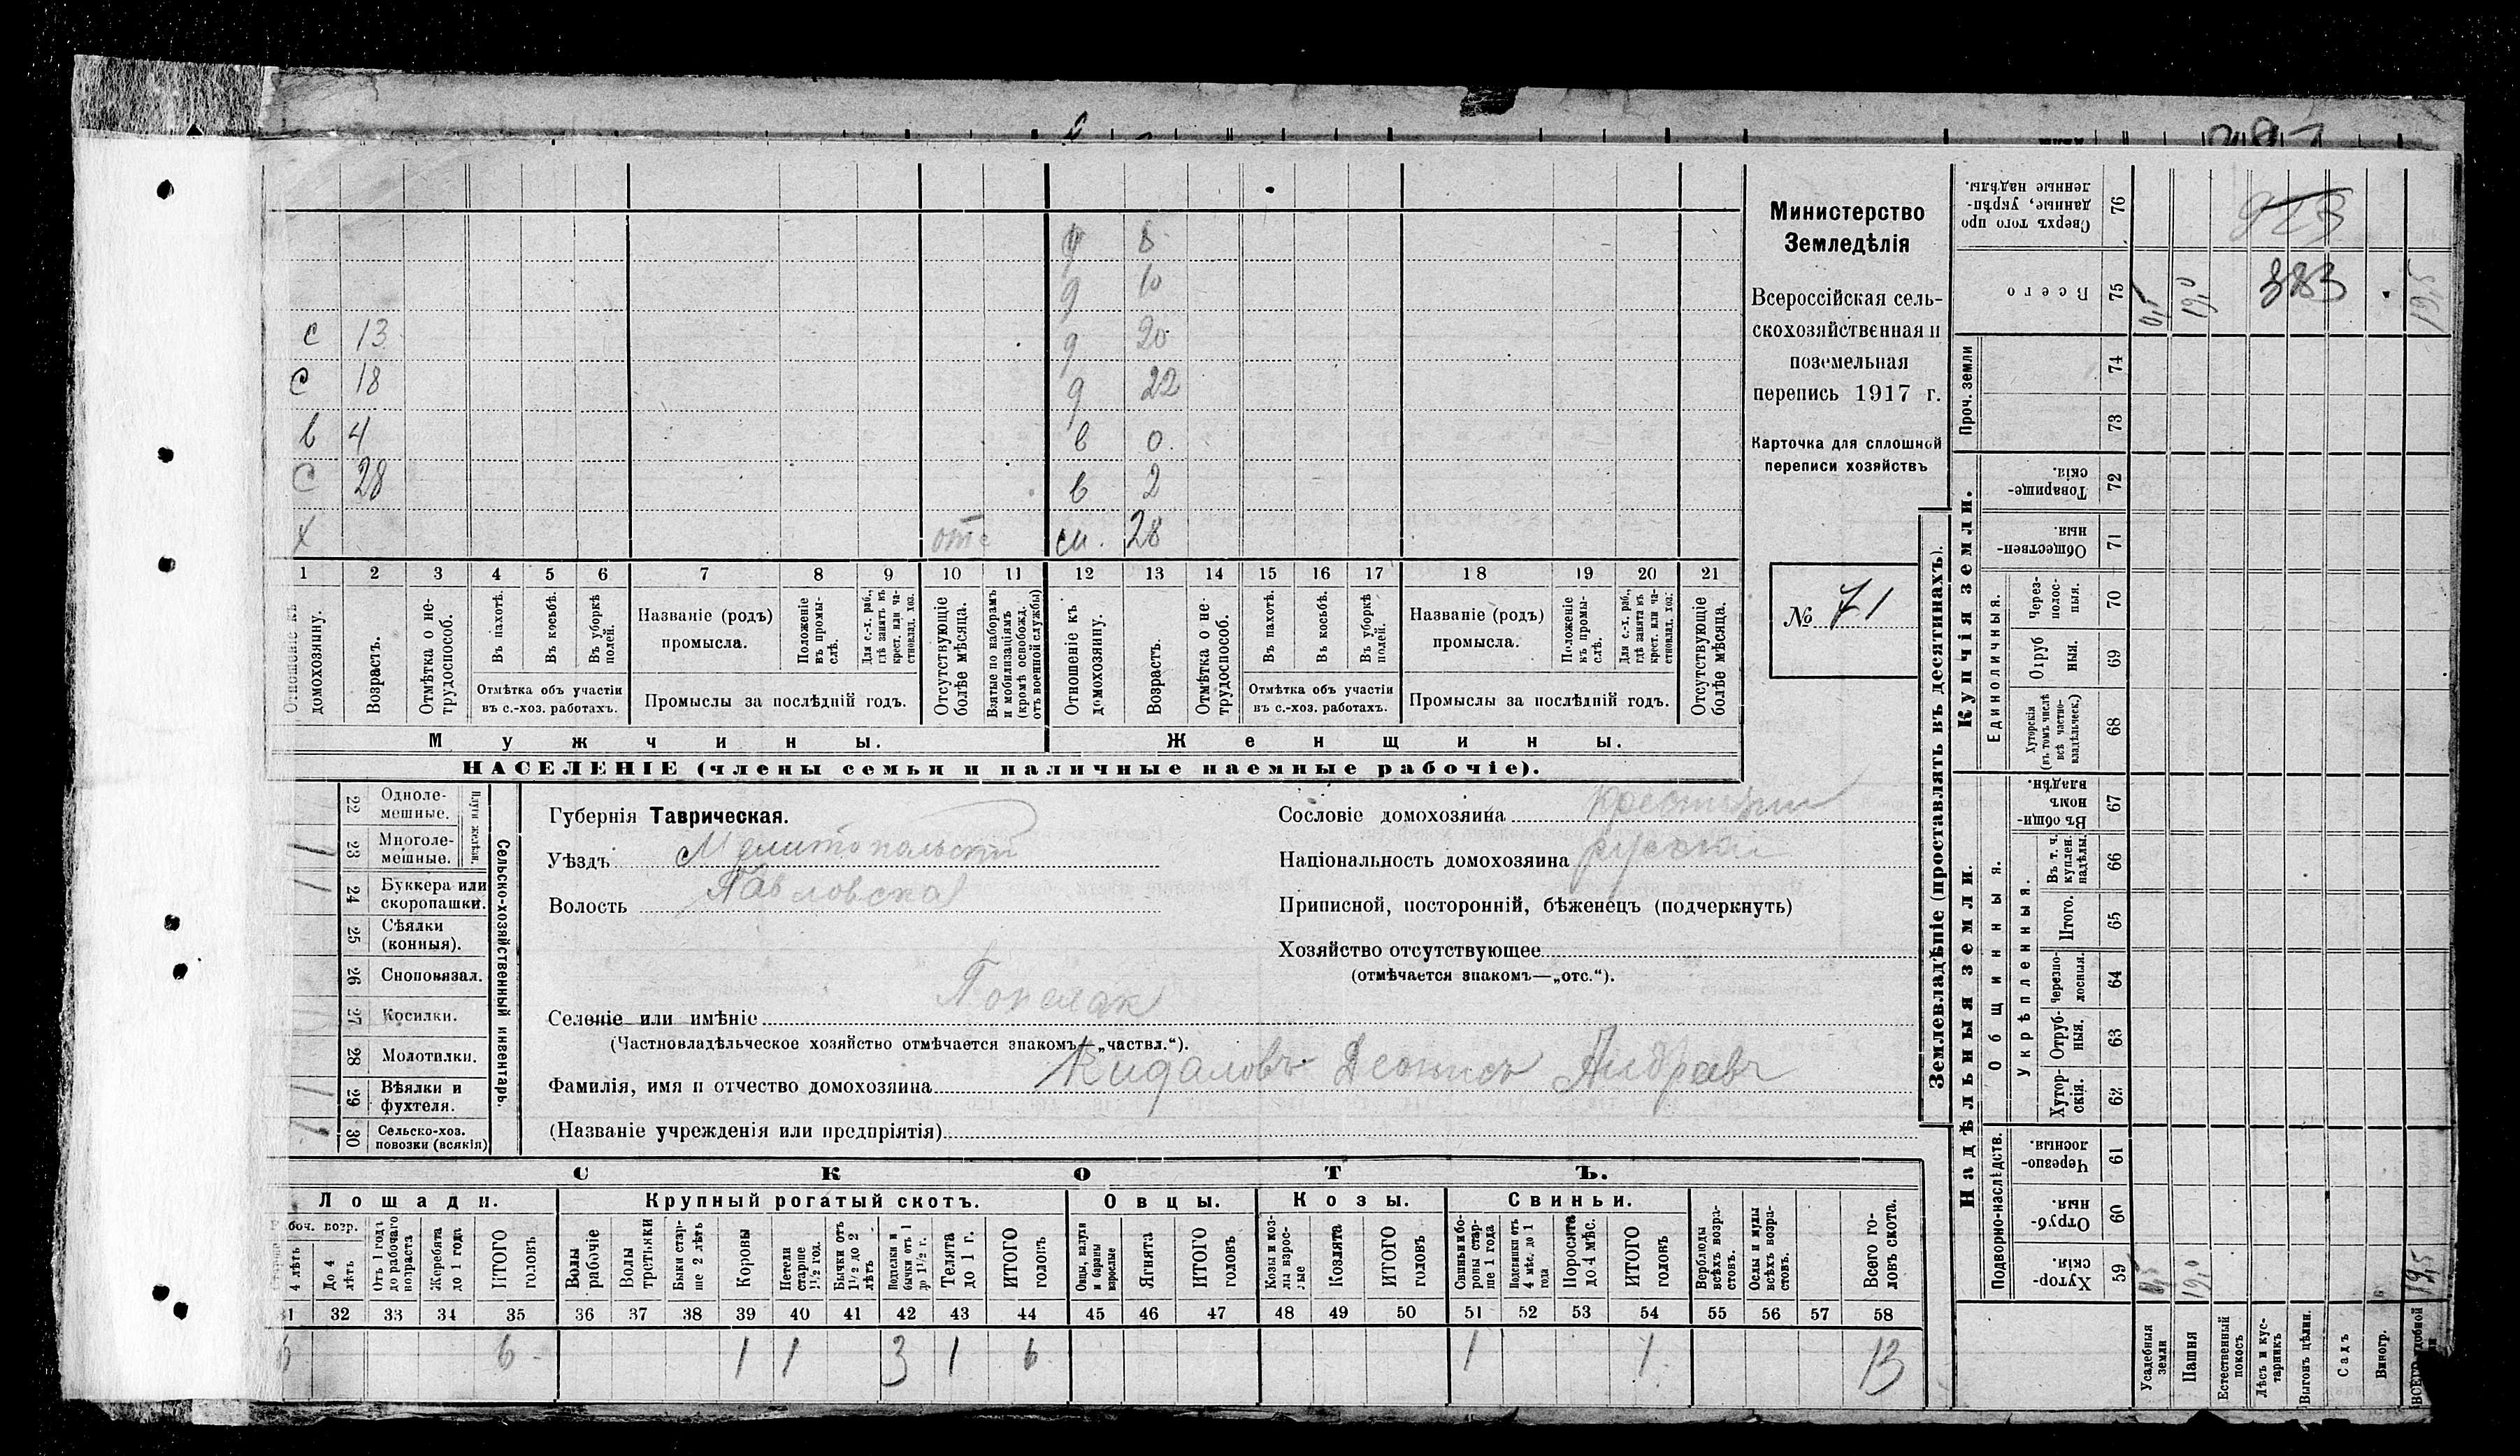 Министерство
Земледѣлія
Всероссійская сель-
скохозяйственная и
поземельная
перепись 1917 г.
Карточка для сплошной
переписи хозяйствъ
№ 71
8
10
с 13 20
с 18 22
в 4 в 0
с 28 в 2
х отс 28
1 2 3 4 5 6 7 8 9 10 11 12 13 14 15 16 17 18 19 20 21
Отношеніе къ домохозяину.
Возрастъ.
Отмѣтка о не-трудоспособ.
Въ пахотѣ.
Въ косьбѣ.
Въ уборкѣ полей.
Отмѣтка объ участіи
въ с.-хоз. работахъ.
Названіе (родъ)
промысла.
Положеніе въ промы-слѣ.
Для с.-х. раб., гдѣ занятъ въ крест. или ча-стновлад. хоз.
Промыслы за послѣдній годъ.
Отсутствующіе болѣе мѣсяца.
Взятые по наборамъ и мобилизаціямъ (кромѣ освобожд. отъ военной службы)
Отношеніе къ домохозяину.
Возрастъ.
Отмѣтка о не-трудоспособ.
Въ пахотѣ.
Въ косьбѣ.
Въ уборкѣ полей.
Отмѣтка объ участіи
въ с.-хоз. работахъ.
Названіе (родъ)
промысла.
Положеніе къ промы-слѣ.
Для с.-х. раб., гдѣ занята въ крест. или ча-стновлад. хоз.
Промыслы за послѣдній годъ.
Отсутствующіе болѣе мѣсяца.
Мужчины. Женщины.
НАСЕЛЕНІЕ (члены семьи и наличные наемные рабочіе).
Губернія Таврическая.
Уѣздъ Мелитопольскій
Волость Павловская
Селеніе или имѣніе
(Частновладѣльческое хозяйство отмѣчается знакомъ—„частвл.“).
Фамилія, имя и отчество домохозяина
(Названіе учрежденія или предпріятія)
Сословіе домохозяина
Національность домохозяина русскій
Приписной, посторонній, бѣженецъ (подчеркнуть)
Хозяйство отсутствующее
(отмѣчается знакомъ—„отс.“).
Сельско-хозяйственный инвентарь.
Плуги желѣзн.
22 Одноле-мешные.
1 23 Многоле-мешные.
1 24 Буккера или скоропашки.
25 Сѣялки (конныя).
26 Сноповязал.
27 Косилки.
28 Молотилки.
1 29 Вѣялки и фухтеля.
1 30 Сельско-хоз. повозки (всякія)
СКОТЪ.
Лошади. Крупный рогатый скотъ. Овцы. Козы. Свиньи.
4 лѣтъ
До 4 лѣтъ
Отъ 1 года до рабочаго возраста
Жеребята до 1 года
ИТОГО головъ
Волы рабочіе
Волы третьяки
Быки стар-ше 2 лѣтъ
Коровы
Нетели старше 1½ год.
Бычки отъ 1½ до 2 лѣтъ
Подтелки и бычки отъ 1 до 1½ г.
Телята до 1 г.
ИТОГО головъ
Овцы, валухи и бараны взрослые
Ягнята
ИТОГО головъ
Козы и коз-лы взрос-лые
Козлята
ИТОГО головъ
Свиньи и бо-ровы стар-ше 1 года
Подсвинки отъ 4 мѣс. до 1 года
Поросята до 4 мѣс.
ИТОГО головъ
Верблюды всѣхъ возра-стовъ.
Ослы и мулы всѣхъ возра-стовъ.
Всего го-ловъ скота.
32 33 34 35 36 37 38 39 40 41 42 43 44 45 46 47 48 49 50 51 52 53 54 55 56 57 58
6 6 1 1 3 1 6 1 1 13
Землевладѣніе (проставлять въ десятинахъ).
Купчія земли.
Надѣльныя земли.
Сверхъ того про-данные, укрѣп-ленные надѣлы. 76
Всего 75 19,0 383 19,5
Проч. земли 74 73
Товарище-скія. 72
Обществен-ныя 71
Единоличныя.
Через-полос-ныя. 70
Отруб ныя. 69
Хуторскія (въ томъ числѣ всѣ частно-владѣльческ.) 68
Общинныя.
Въ общи-номъ владѣн. 67
Укрѣпленныя.
Въ т. ч. куплен. надѣлы. 66
Итого. 65
Черезпо-лосныя. 64
Отруб-ныя. 63
Хутор-скія. 62
Подворно-наслѣдств.
Черезпо-лосныя 61
Отруб-ныя. 60
Хутор-скія. 59 0,5 19,0 19,5
Усадебныя земли
Пашня
Естественный покосъ
Лѣсъ и кус-тарникъ
Выгонъ цѣлин.
Садъ
Виногр.